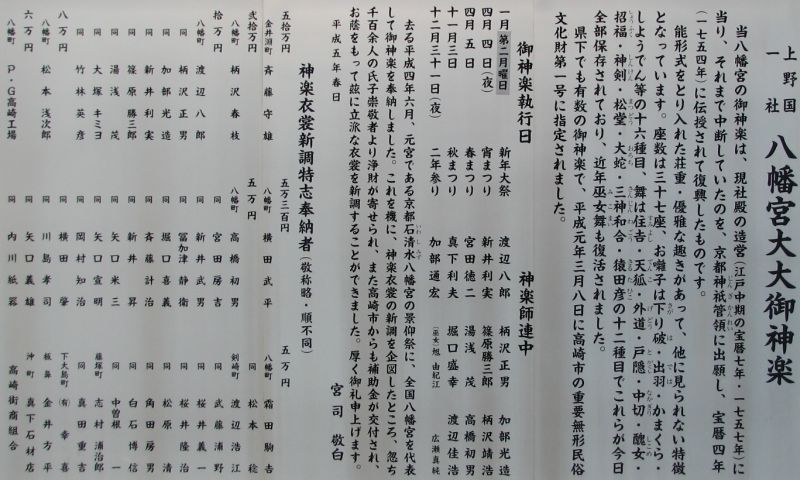 上野国
一社
八幡宮大大御神楽
当八幡宮の御神楽は、現社殿の造営(江戸中期の宝暦七年・一七五七年)に
当り、それまで中断していたのを、京都神祇管領に出願し、宝暦四年
(一七五四年)に伝授されて復興したものです。
能形式をとり入れた荘重・優雅な趣きがあって、他に見られない特徴
となっています。座数は三十七座、お囃子は下り破・出羽・かまくら・
しようでん等の十六種目、舞は住吉・天狐・外道・戸隠・中切・醜女・
招福・神剣・松堂・大蛇・三神和合・猿田彦の十二種目でこれらが今日
全部保存されており、近年巫女舞も復活されました。
県下でも有数の御神楽で、平成元年三月八日に高崎市の重要無形民俗
文化財第一号に指定されました。
御神楽執行日
一月 第二月曜日 新年大祭
四月四日(夜) 宵まつり
四月五日 春まつり
十一月三日 秋まつり
十二月三十一日(夜) 二年参り
神楽師連中
渡辺八郎 柄沢正男 加部光造
新井利実 篠原勝三郎 柄沢靖浩
宮田徳二 湯浅茂 高橋初男
真下利夫 堀口盛幸 渡辺佳浩
加部通宏 (巫女)旭由紀江 広瀬真純
去る平成四年六月、元宮である京都石清水八幡宮の景仰祭に、全国八幡宮を代表
して御神楽を奉納しました。これを機に、神楽衣裳の新調を企図したところ、忽ち
千百余人の氏子崇敬者より浄財が寄せられ、また高崎市からも補助金が交付され、
お蔭をもって茲に立派な衣裳を新調することができました。厚く御礼申し上げます。
平成五年春日
宮司 敬白
神楽衣裳新調特志奉納者(敬称略・順不同)
五十万円
金井淵町 斉藤守雄
弐拾万円
八幡町 柄沢春枝
拾万円
八幡町 渡辺八郎
同 柄沢正男
同 加部光造
同 新井利実
同 篠原勝三郎
同 湯浅茂
同 大塚キミヨ
同 竹林英彦
八万円
八幡町 松本浅次郎
六万円
八幡町 P・G高崎工場
五万三百円
同 横田武平
五万円
八幡町 高橋初男
同 宮田房吉
同 新井武男
同 冨加津静衛
同 堀口喜義
同 斉藤計治
同 新井昇
同 矢口米三
同 矢口宣明
同 岡村知治
同 横田肇
同 川島孝司
同 矢口義雄
同 内川紙器
五万円
八幡町 霜田駒吉
同 松本稔
剣崎町 渡辺浩江
同 武藤浦野
同 桜井義一
同 桜井隆治
同 松原清
同 角田房男
同 白石博信
同 中曽根一
藤塚町 志村浦治郎
同 真田重吉
下大島町 (有)幸喜
板鼻 金井方平
沖町 真下石材店
高崎街商組合